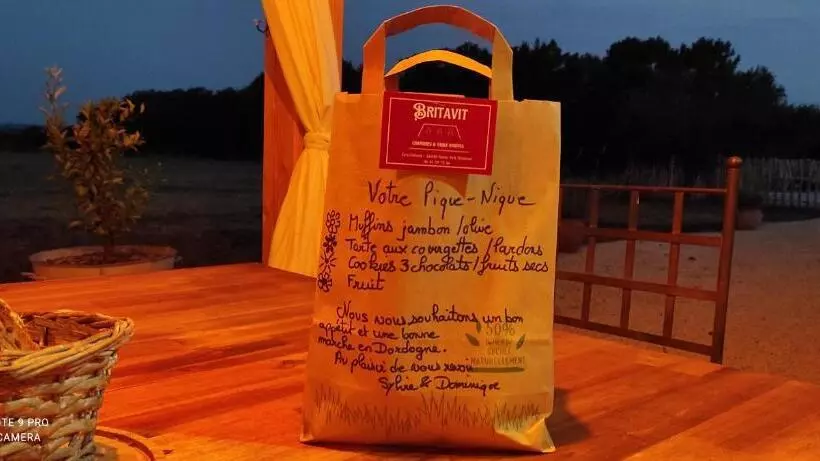 BRITAVIT
CHAMBRES & TABLE D'HÔTES
Votre Pique-Nique
Muffins jambon/olive
Tarte aux courgettes/lardons
Cookies 3 chocolats/fruits secs
Fruit
Nous vous souhaitons un bon
appétit et une bonne
marche en Dordogne.
Au plaisir de vous revoir
Sylvie & Dominique
50%
NATURELLEMENT
TE 9 PRO
CAMERA